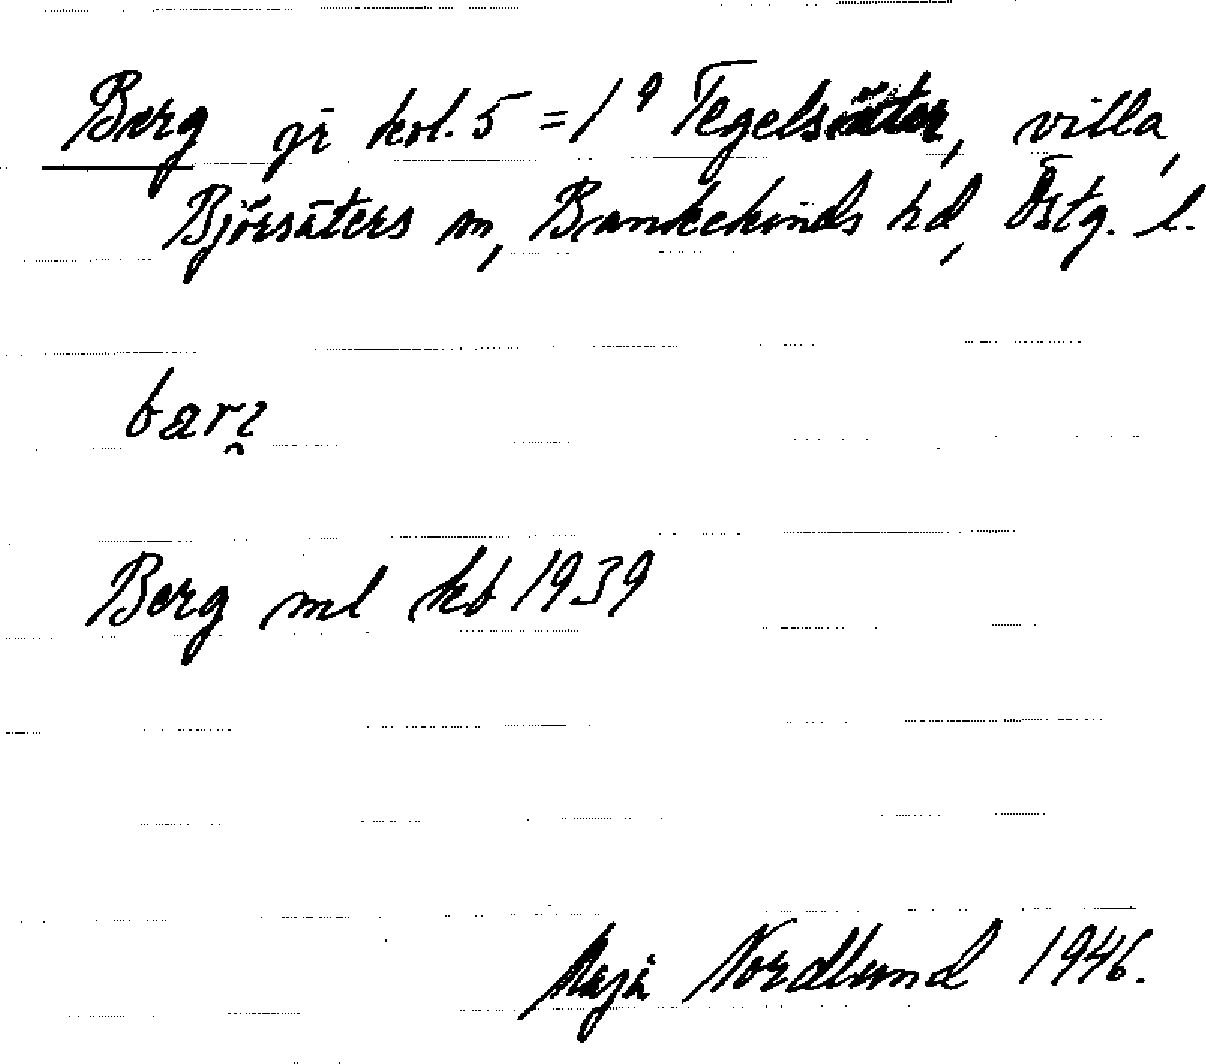 Berg jr kol. 5 = 1⁹ Tegelsäter, villa,
Björsäters sn, Bankekinds hd, Östg. l.
barz
Berg ml kb 1939
Maja Nordlund 1946.